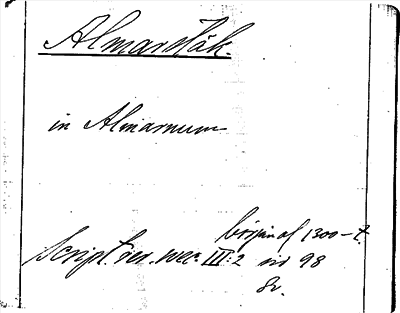 Almarstäk.
in Almarnum
början af 1300-t.
Script. rer. svec. III:2 sid 98
Sv.